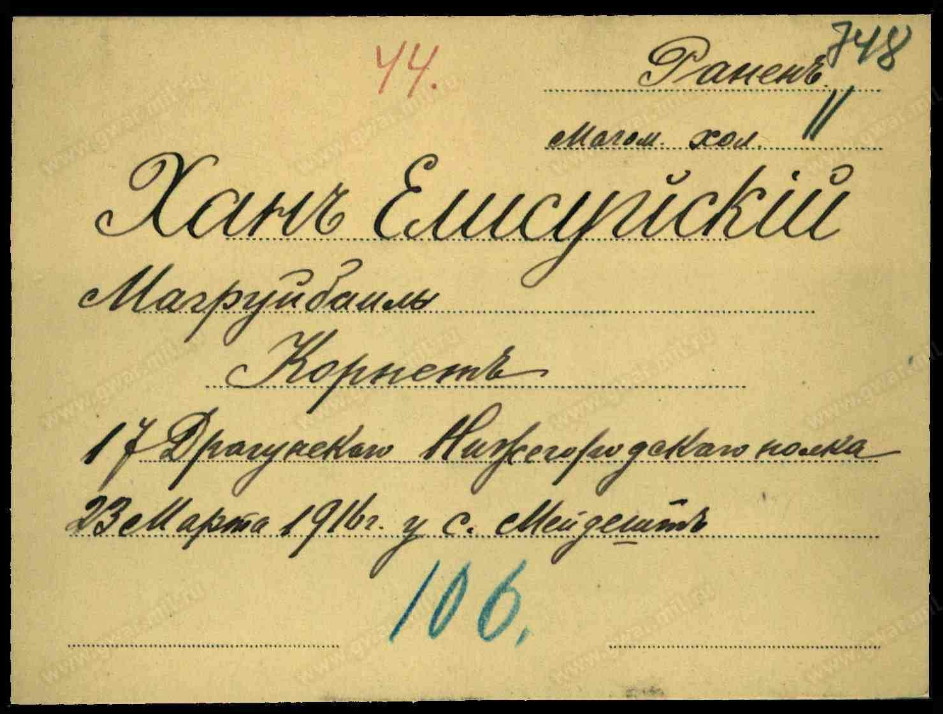 44.
748
Раненъ.
Магом. хол. 11
Ханъ Елисуйскій
Магруйбаилы
Корнетъ
17 Драгунскаго Нижегородскаго полка
23 Марта 1916г. у с. Мейдештъ
106.
www.gwar.mil.ru